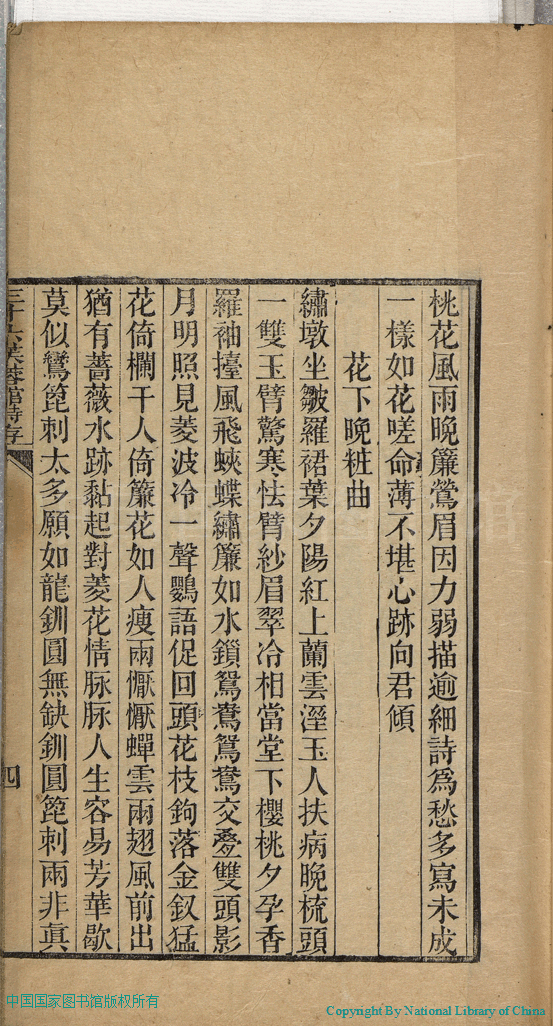 桃花風雨晚簾鶯眉因力弱描逾細詩爲愁多寫未成
一樣如花嗟命薄不堪心跡向君傾
花下晚粧曲
繡墩坐皺羅裙葉夕陽紅上蘭雲溼玉人扶病晚梳頭
一雙玉臂驚寒怯臂紗眉翠冷相當堂下櫻桃夕孕香
羅袖擡風飛蛺蝶繡簾如水鎖鴛鴦鴛鴦交疊雙頭影
月明照見菱波冷一聲鸚語促回頭花枝鉤落金釵猛
花倚欄干人倚簾花如人瘦兩懨懨蟬雲兩翅風前出
猶有薔薇水跡黏起對菱花情脉脉人生容易芳華歇
莫似鸞篦刺太多願如龍釧圓無缺釧圓篦刺兩非真
三十六芙蓉館詩存
四
中国国家图书馆版权所有
Copyright By National Library of China